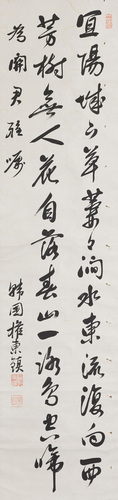 宜陽城下草萋々澗水東流復向西
芳樹無人花自落春山一路鳥空啼
為蘭君雅嘱
韓国権東鎮